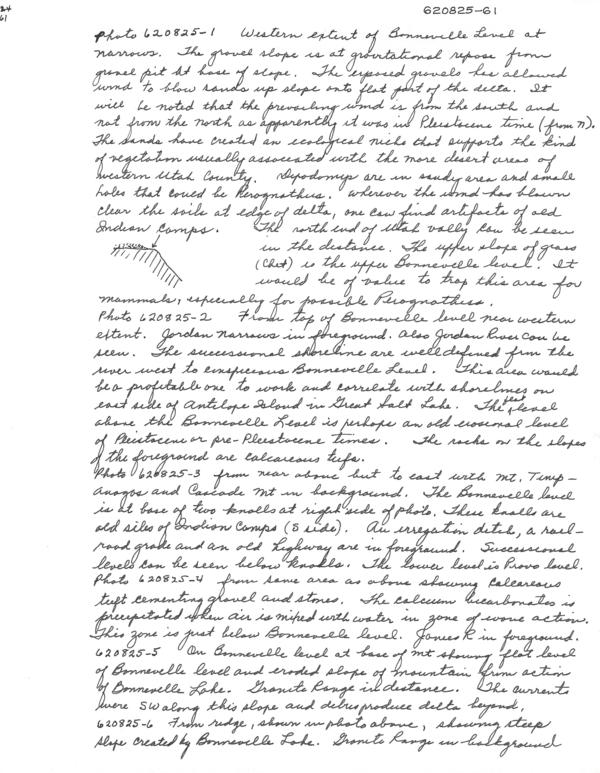 620825-61
24
61
Photo 620825-1 Western extent of Bonneville Level at
narrows. The gravel slope is at gravitational repose from
gravel pit at base of slope. The exposed gravels has allowed
wind to blow sands up slope onto flat part of the delta. It
will be noted that the prevailing wind is from the south and
not from the north as apparently it was in Pleistocene time (from N).
The sands have created an ecological niche that supports the kind
of vegetation usually associated with the more desert areas of
western Utah County. Dipodomys are in sandy area and small
holes that could be Perognathus. Wherever the wind has blown
clear the soils at edge of delta, one can find artifacts of old
Indian Camps. The north end of Utah vally can be seen
in the distance. The upper slope of grass
(Cheat) is the upper Bonneville level. It
would be of value to trap this area for
mammals, especially for possible Perognathus.
Photo 620825-2 From top of Bonneville level near western
extent. Jordan narrows in foreground. Also Jordan River can be
seen. The successional shoreline are well defined from the
river west to conspicuous Bonneville Level. This area would
be a profitable one to work and correlate with shorelines on
east side of Antelope Island in Great Salt Lake. The flat level
above the Bonneville Level is perhaps an old erosional level
of Pleistocene or pre-Pleistocene times. The rocks on the slopes
of the foreground are calcareous tufa.
Photo 620825-3 from near above but to east with Mt. Timp-
anogos and Cascade Mt in background. The Bonneville level
is at base of two knolls at right side of photo. These knolls are
old sites of Indian Camps (S side). An irregation ditch, a rail-
road grade and an old highway are in foreground. Successional
levels can be seen below knolls. The lower level is Provo level.
Photo 620825-4 from same area as above showing calcareous
tuft cementing gravel and stones. The calcium bicarbonates is
precipitated when air is mixed with water in zone of wave action.
This zone is just below Bonneville level. Jones R in foreground.
620825-5 On Bonneville level at base of mt showing flat level
of Bonneville level and eroded slope of mountain from action
of Bonneville Lake. Granite Range in distance. The currents
were SW along this slope and debris produce delta beyond.
620825-6 From ridge, shown in photo above, showing steep
slope created by Bonneville Lake. Granite Range in background